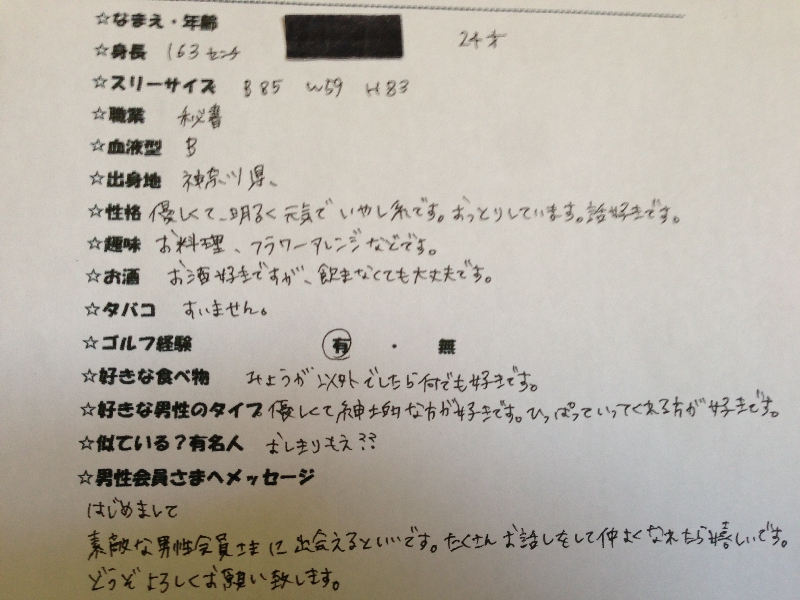 ☆なまえ・年齢 24才
☆身長 163センチ
☆スリーサイズ B85 W59 H83
☆職業 秘書
☆血液型 B
☆出身地 神奈川県、
☆性格 優しくて、明るく元気でいやし系です。おっとりしています。話好きです。
☆趣味 お料理、フラワーアレンジなどです。
☆お酒 お酒好きですが、飲まなくても大丈夫です。
☆タバコ すいません。
☆ゴルフ経験 有・無
☆好きな食べ物 みょうが以外でしたら何でも好きです。
☆好きな男性のタイプ 優しくて紳士的な方が好きです。ひっぱっていってくれる方が好きです。
☆似ている?有名人 おしきりもえ??
☆男性会員さまへメッセージ
はじめまして
素敵な男性会員さまに出会えるといいです。たくさんお話しをして仲よくなれたら嬉しいです。
どうぞよろしくお願い致します。